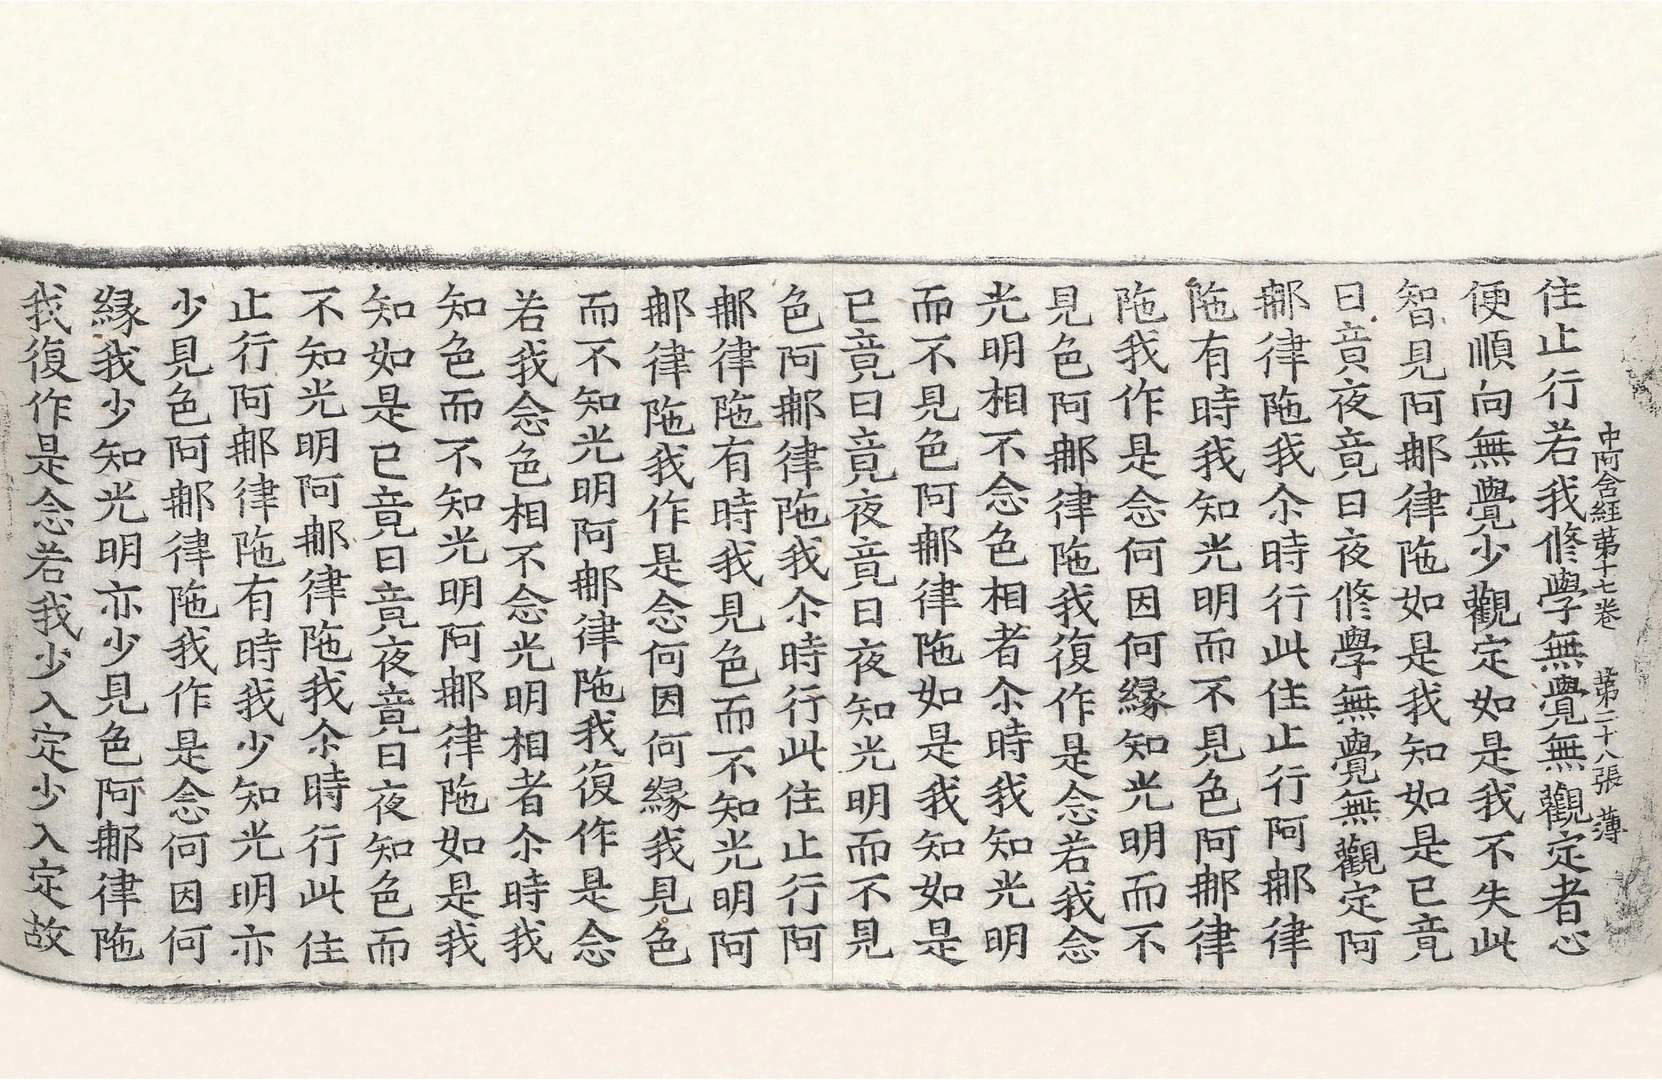 中阿含経第十七卷 第二十八張 薄
住止行若我修學無覺無觀定者心
便順向無覺少觀定如是我不失此
智見阿那律陁如是我知如是已竟
日竟夜竟日夜修學無覺無觀定阿
那律陁我尒時行此住止行阿那律
陁有時我知光明而不見色阿那律
陁我作是念何因何縁知光明而不
見色阿那律陁我復作是念若我念
光明相不念色相者尒時我知光明
而不見色阿那律陁如是我知如是
已竟日竟夜竟日夜知光明而不見
色阿那律陁我尒時行此住止行阿
那律陁有時我見色而不知光明阿
那律陁我作是念何因何縁我見色
而不知光明阿那律陁我復作是念
若我念色相不念光明相者尒時我
知色而不知光明阿那律陁如是我
知如是已竟日竟夜竟日夜知色而
不知光明阿那律陁我尒時行此住
止行阿那律陁有時我少知光明亦
少見色阿那律陁我作是念何因何
縁我少知光明亦少見色阿那律陁
我復作是念若我少入定少入定故